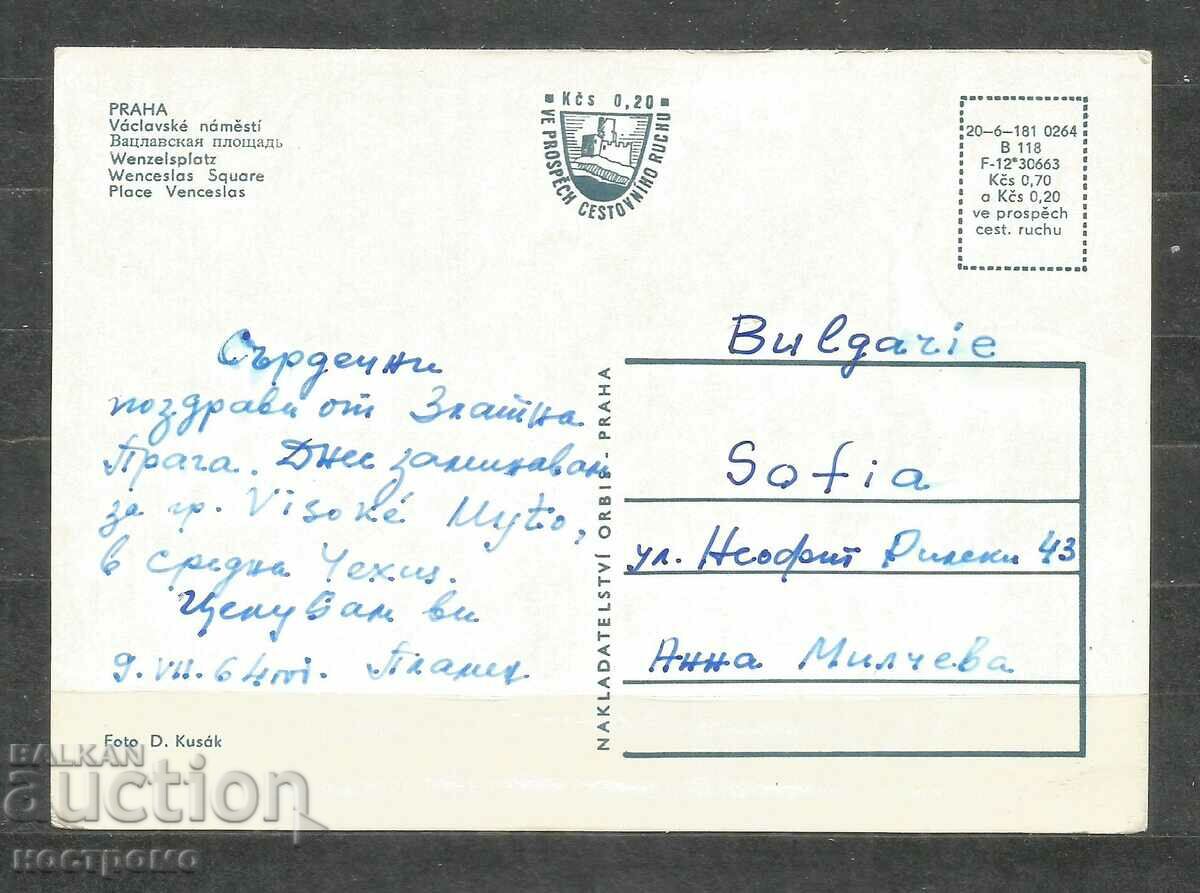 PRAHA
Václavské náměstí
Вацлавская площадь
Wenzelsplatz
Wenceslas Square
Place Venceslas
Kčs 0,20
VE PROSPĚCH CESTOVNÍHO RUCHU
20-6-181 0264
B 118
F-12*30663
Kčs 0,70
a Kčs 0,20
ve prospěch
cest. ruchu
Сърдечни
поздрави от Златна
Прага. Днес заминавам
за гр. Visoké Myto,
в средна Чехия.
Целувам ви
9.VII.64 Пламен
NAKLADATELSTVÍ ORBIS - PRAHA
Bulgarie
Sofia
ул. Неофит Рилски 43
Анна Милчева
Foto D. Kusák
BALKAN
auction
костромо